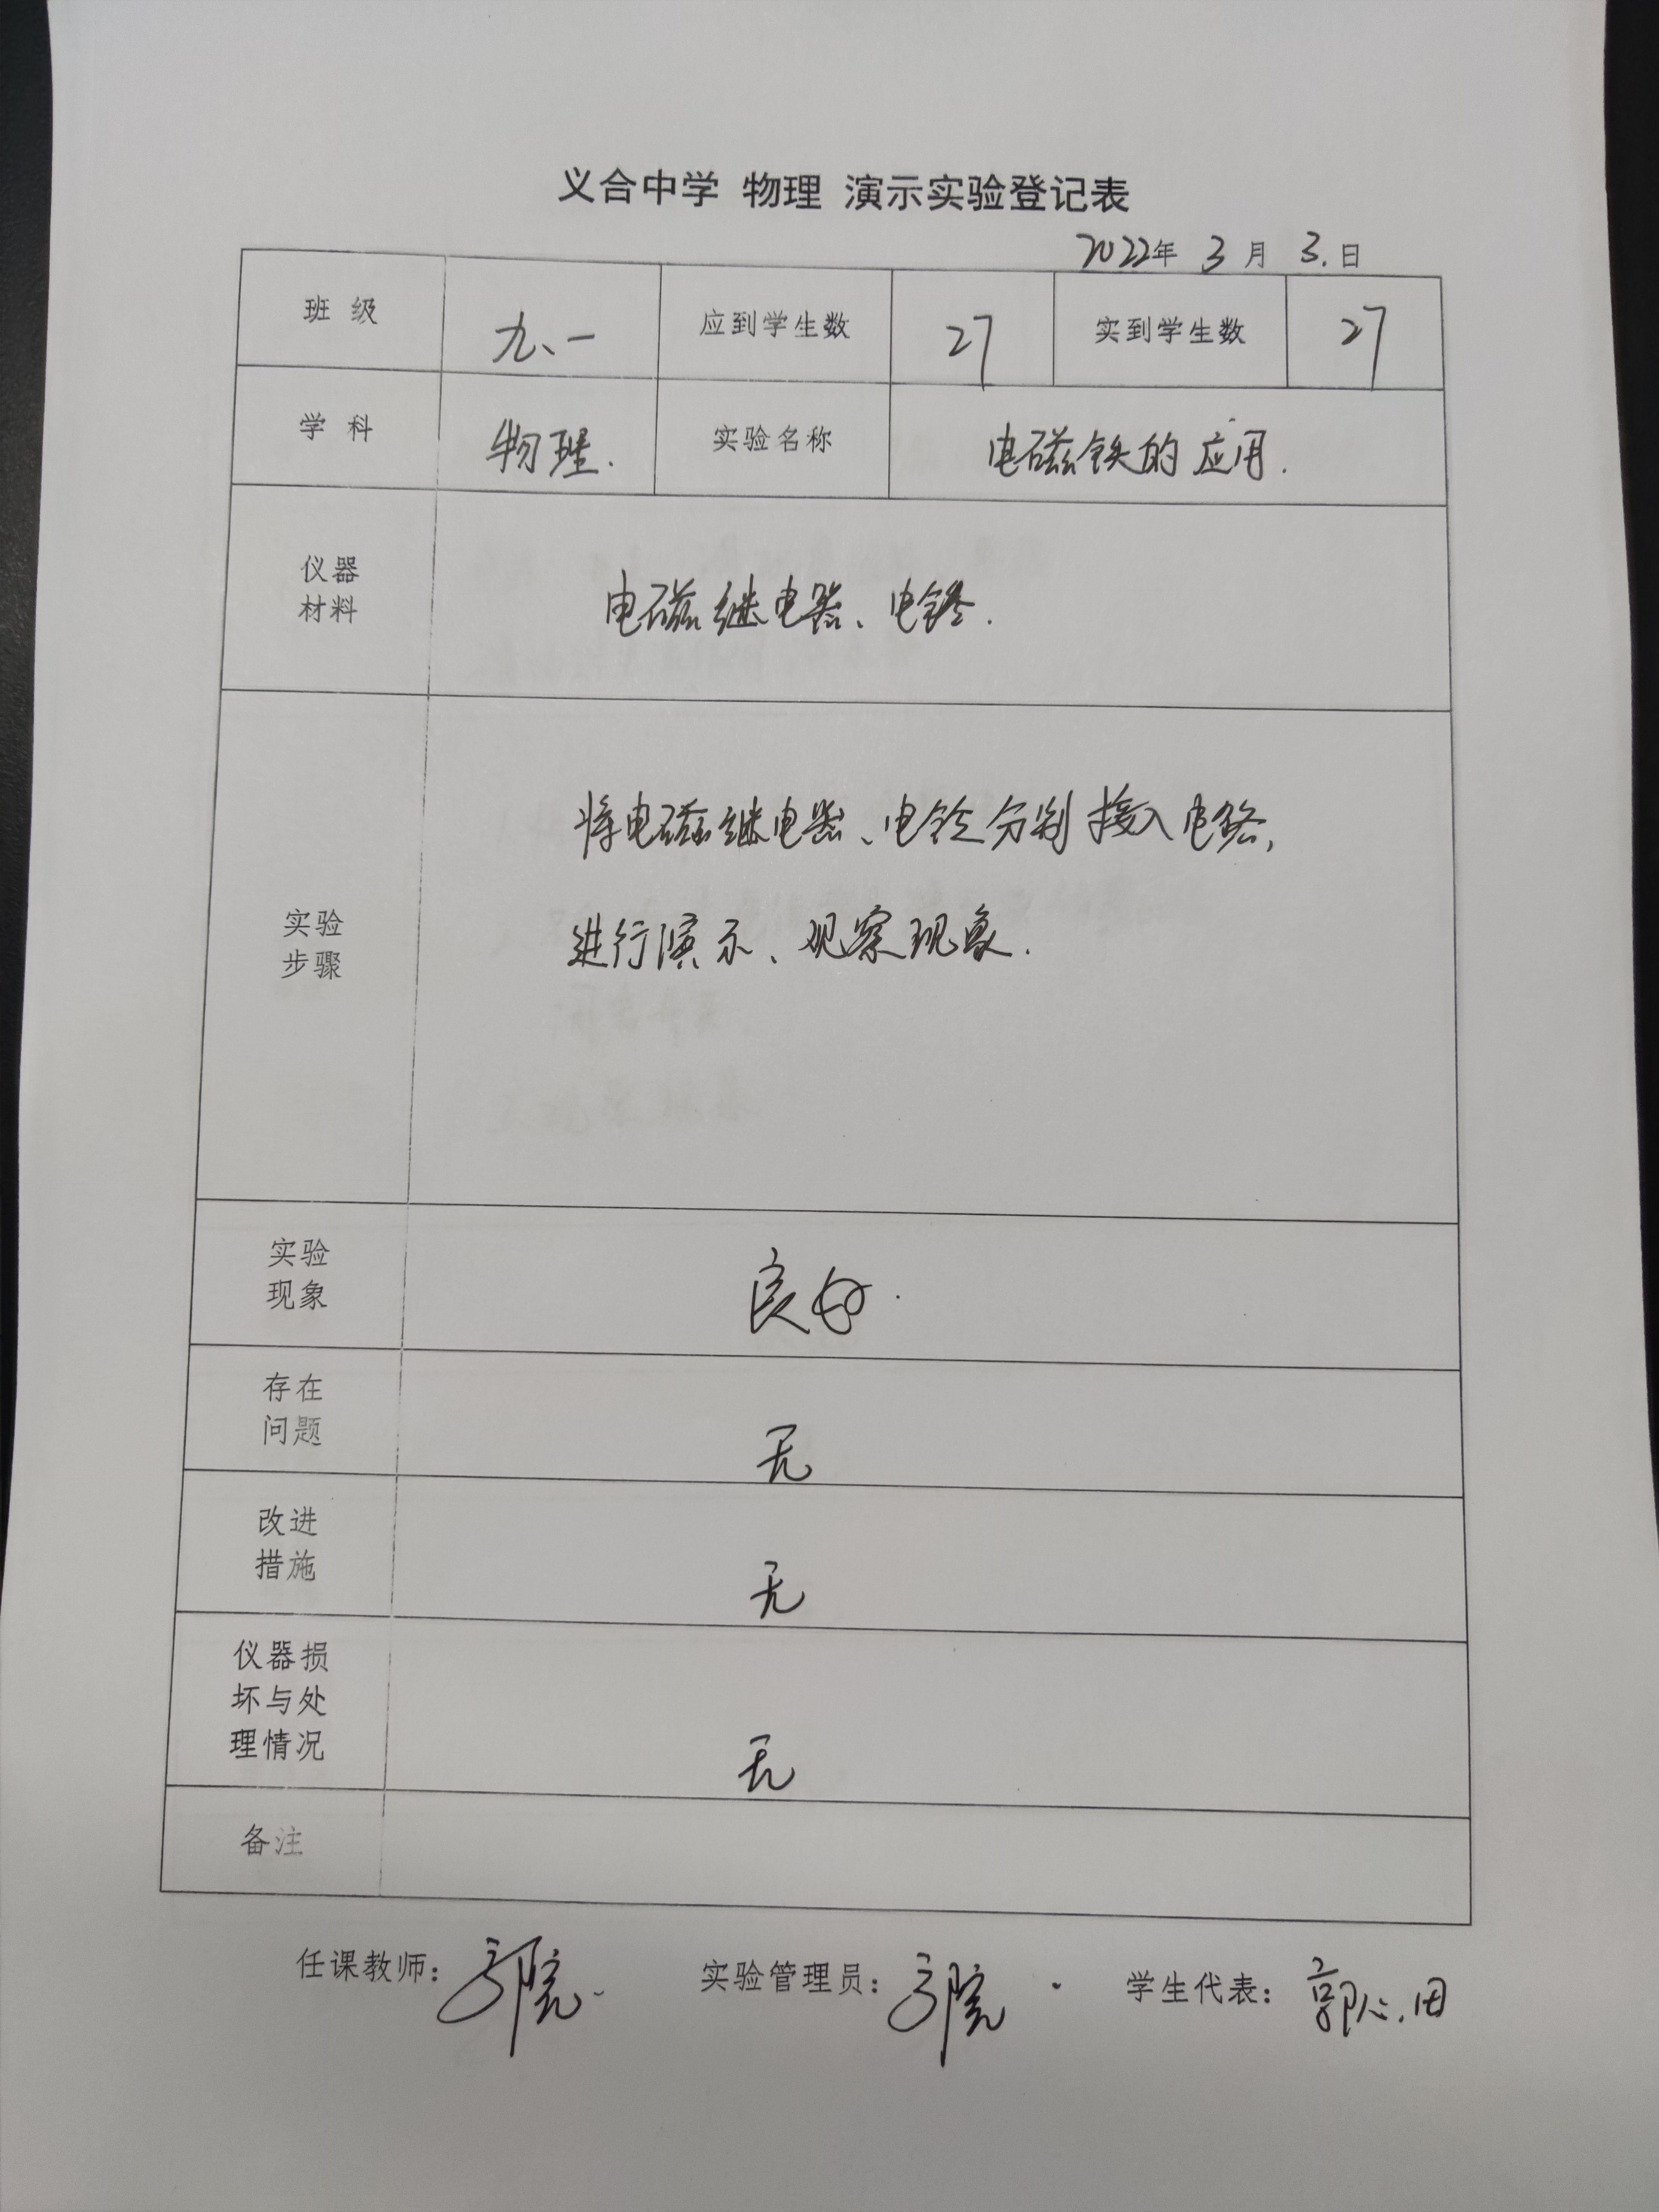 义合中学 物理 演示实验登记表
2022年 3 月 3.日
班 级 九、一 应到学生数 27 实到学生数 27
学 科 物理. 实验名称 电磁铁的应用.
仪器
材料
电磁继电器、电铃.
将电磁继电器、电铃分别接入电路,
实验
步骤
进行演示、观察现象.
实验
现象
良好.
存在
问题
无
改进
措施
无
仪器损
坏与处
理情况
无
备注
任课教师: 实验管理员: 学生代表: